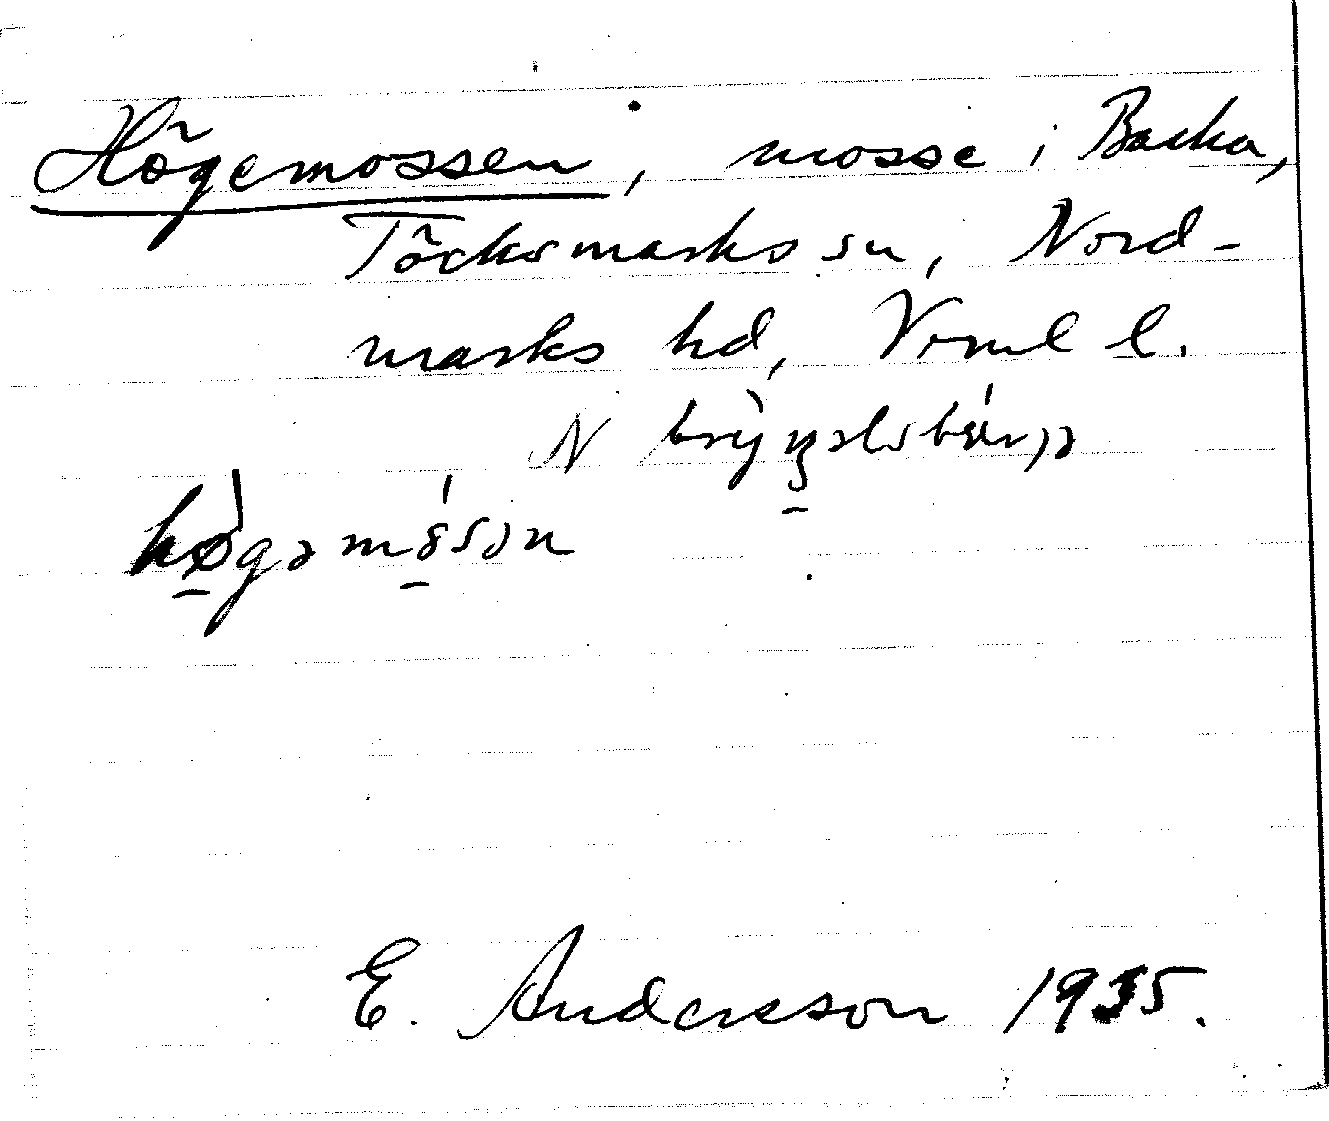 Högemossen, mosse i Backa,
Töcksmarks sn, Nord-
marks hd, Vrml l.
N
høgəmosən
E. Andersson 1935.